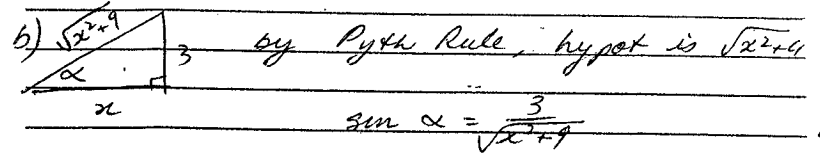 b) √x²+9
3
α
x
by Pyth Rule, hypot is √x²+9
sin α = 3/√x²+9